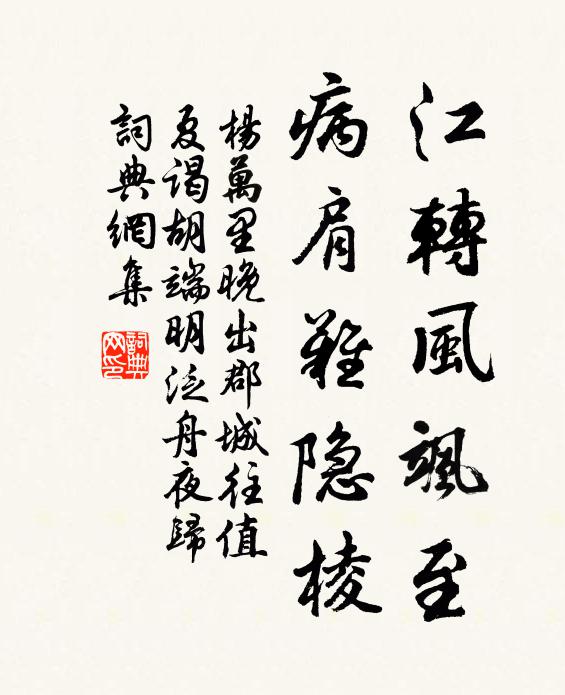 江轉風颯至
病肩難隐棱
楊萬里晚出郡城往值
夏謁胡端明泛舟夜歸
詞典網集
詞典
网印